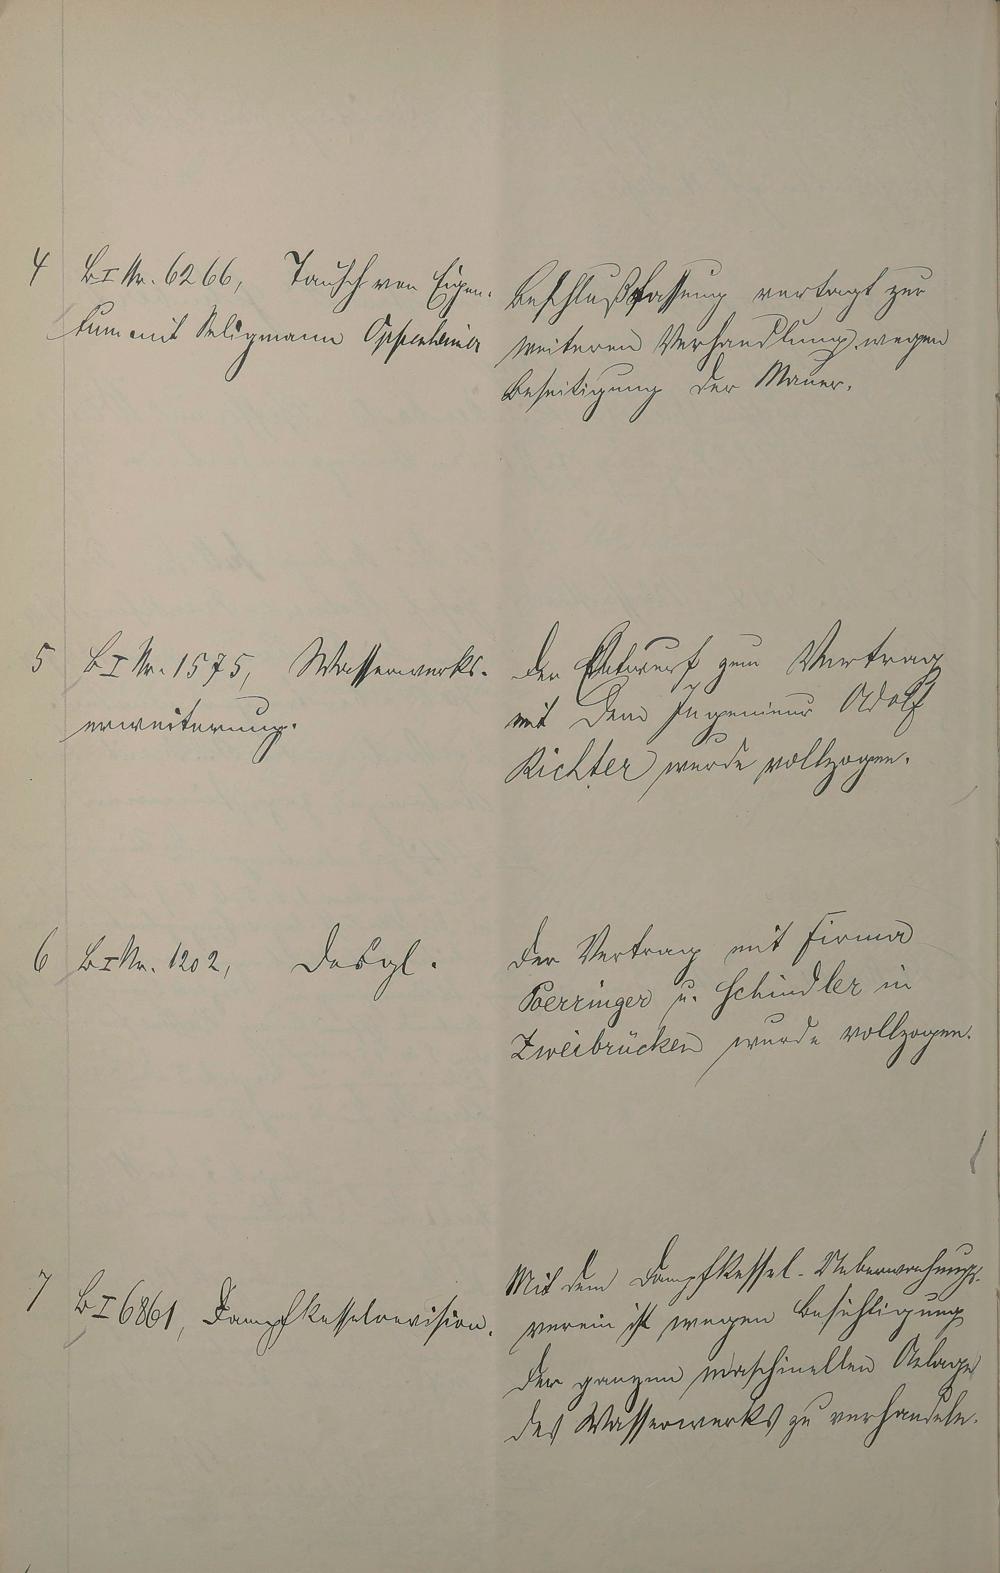 4 B I Nr. 6266, Tausch von Eigen-
tum mit Seligmann Oppenheimer
Beschlußfassung vertagt zur
weiteren Verhandlung wegen
Beseitigung der Mauer.
5 B I Nr. 1575, Wasserwerks-
erweiterung.
Der Entwurf zum Vertrag
mit dem Ingenieur Adolf
Richter wurde vollzogen.
6 B I Nr. 1202, Desgl.
Der Vertrag mit Firma
Roerringer u. Schindler in
Zweibrücken wurde vollzogen.
7 B I 6861, Dampfkesselrevision.
Mit dem Dampfkessel-Ueberwachungs-
verein ist wegen Besichtigung
der ganzen maschinellen Anlage
des Wasserwerks zu verhandeln.